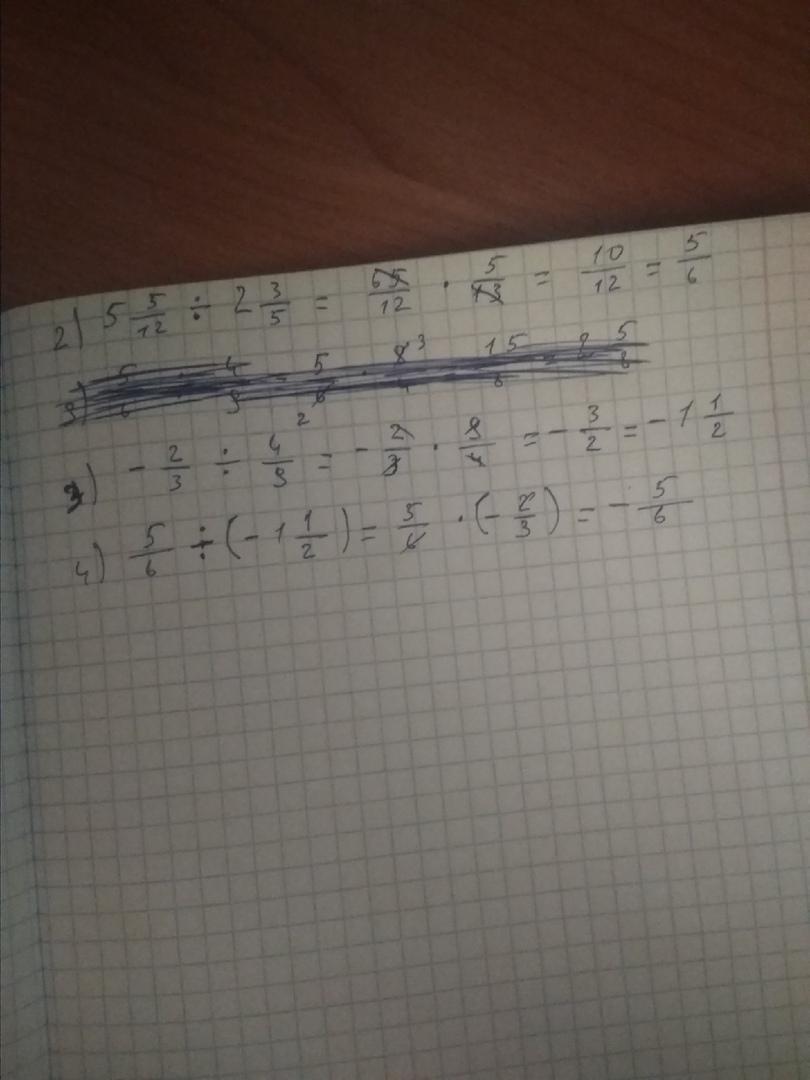 2) 5 5/12 ÷ 2 3/5 = 65/12 · 5/13 = 10/12 = 5/6
3) - 2/3 ÷ 4/9 = - 2/3 · 9/4 = - 3/2 = - 1 1/2
4) 5/6 ÷ (- 1 1/2) = 5/6 · (- 2/3) = - 5/6